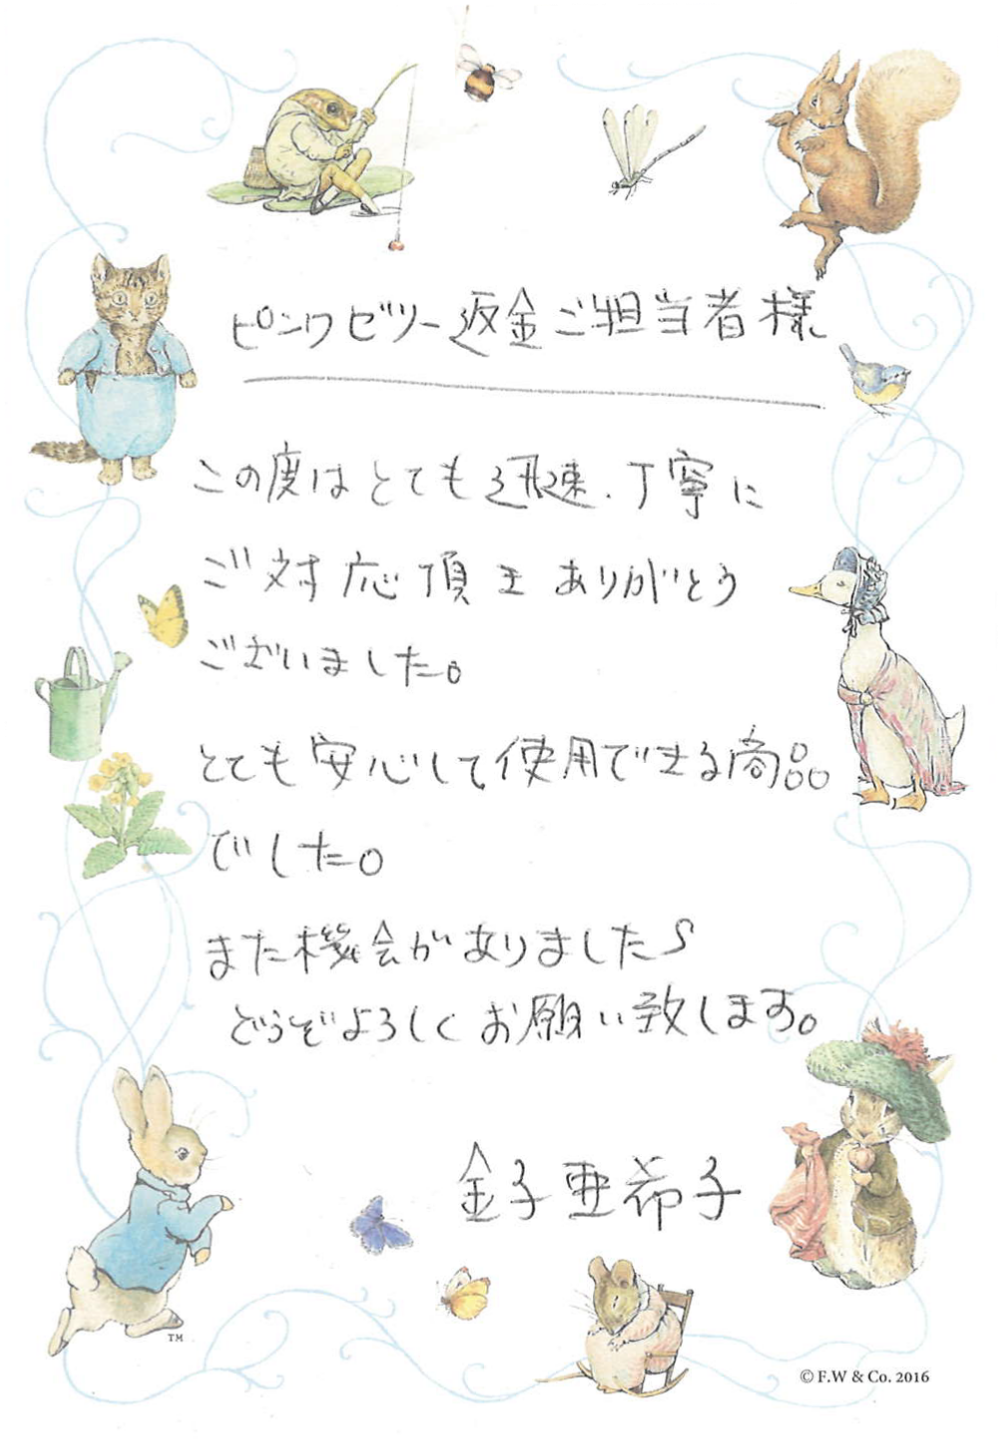 ピンクゼリー返金ご担当者様
この度はとても迅速、丁寧に
ご対応頂きありがとう
ございました。
とても安心して使用できる商品
でした。
また機会がありましたら
どうぞよろしくお願い致します。
金子亜希子
TM
© F.W & Co. 2016